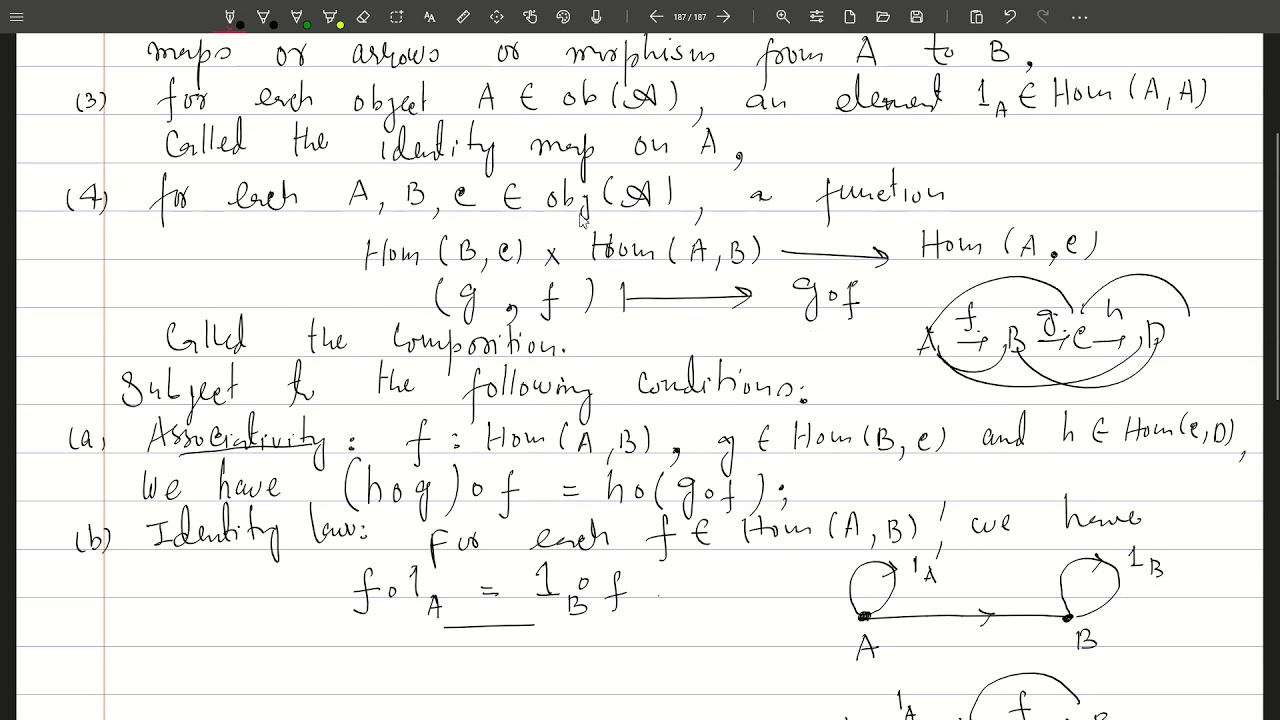 187 / 187
maps or arrows or morphisms from A to B,
(3) for each object A ∈ ob(𝒜), an element 1_A ∈ Hom (A, A)
Called the identity map on A,
(4) for each A, B, C ∈ obj(𝒜), a function
Hom (B, C) × Hom (A, B) ⟶ Hom (A, C)
(g, f) ⟼ gof
Called the composition.
A f→ B g→ C h→ D
Subject to the following conditions:
(a) Associativity: f : Hom (A, B), g ∈ Hom (B, C) and h ∈ Hom (C, D),
We have (hog)of = ho(gof);
(b) Identity law: For each f ∈ Hom (A, B), we have
fo1_A = 1_B o f
1_A 1_B
A B
1_A f